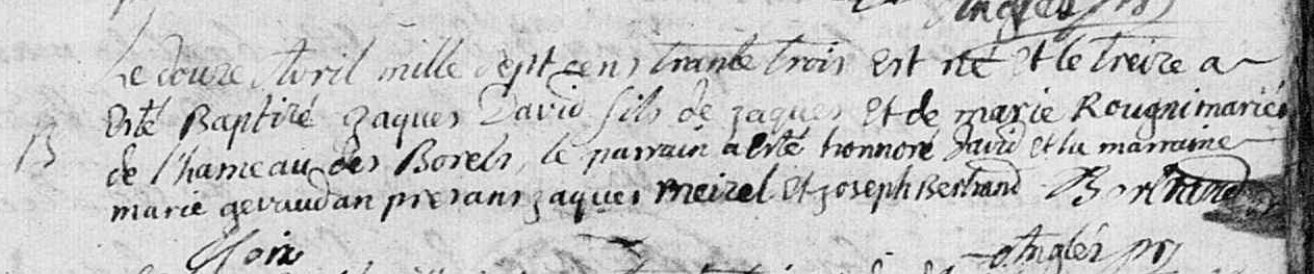 Anglés prs
Le douze Avril mille sept cens trante trois est né et le treize a
B esté Baptizé Jaques David fils de Jaques et de marie Rougni mariés
de l'hameau des Borels, le parrain a esté honnoré David et la marraine
marie gevaudan presans Jaques Meizel et Joseph Bertrand Bertrand
Anglés prs